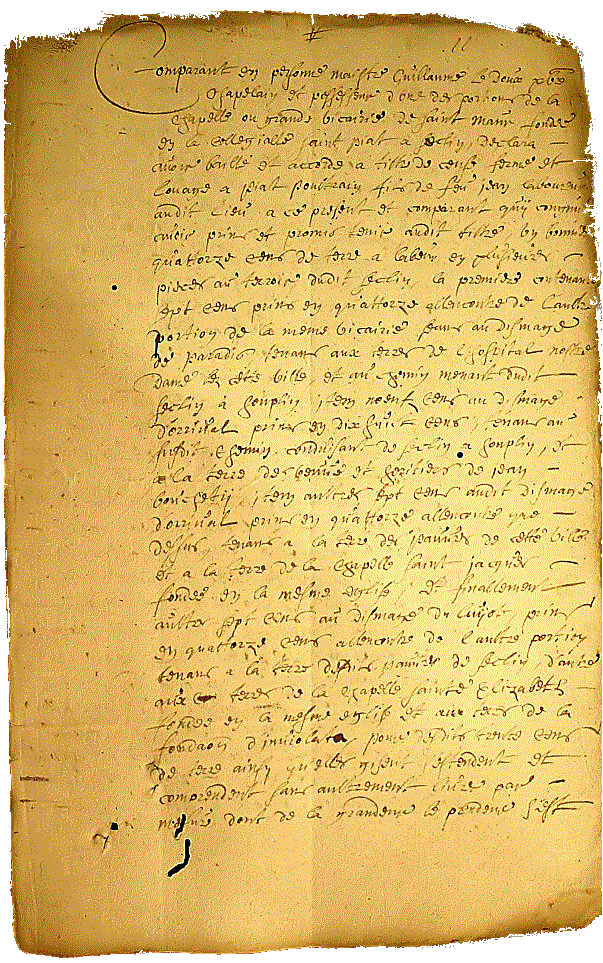 Comparant en personne maistre Guillaume le Doux pbre
Chapelain et possesseur d'une des portions de la
Chapelle ou grande vicairie de saint Mauri fondee
en la collegialle saint Piat a Seclin, declara
avoir baillé et accordé a tiltre de cense ferme et
louage a Piat Poultrain fils de feu Jean laboureur
audit lieu a ce present et comparant quy
prins et promis tenir audit tiltre, un bonnier
quattorze cens de terre a labeur en plusieurs
pieces au terroir dudit Seclin, la premiere contenant
sept cens prins en quattorze allencontre de l'aultre
portion de la meme vicairie seans au dismage
de paradis tenans aux terres de l'hospital nostre
Dame lez cette ville, et au chemin menant dudit
Seclin à Houplin, item noeuf cens au dismage
d'orrival prins en dix huict cens, tenans au
susdit chemin conduisant de Seclin a Houplin, et
a la terre des vefve et heritiers de Jean
item aultres sept cens audit dismage
d'orrival prins en quattorze allencontre que
dessus, tenans a la terre des pauvres de cette ville
et a la terre de la chapelle saint Jacques
fondée en la mesme eglise, Et finallement
aultres sept cens au dismage du prins
en quattorze cens allencontre de l'aultre portion
tenans a la terre desdits pauvres de Seclin, d'aultre
aux terres de la chapelle sainte Elizabeth
fondée en la mesme eglise et aux terres de la
fondaon d'inviolata, pour desdits trente cens
de terre ainsy qu'elles gisent s'estendent et
comprendent sans aultrement livrer par
mesure dont de la grandeur le preneur s'est